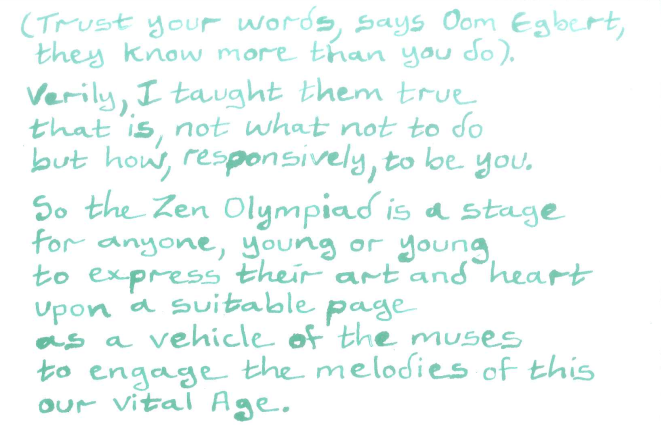 (Trust your words, says Oom Egbert,
they know more than you do).
Verily, I taught them true
that is, not what not to do
but how, responsively, to be you.
So the Zen Olympiad is a stage
for anyone, young or young
to express their art and heart
upon a suitable page
as a vehicle of the muses
to engage the melodies of this
our vital Age.